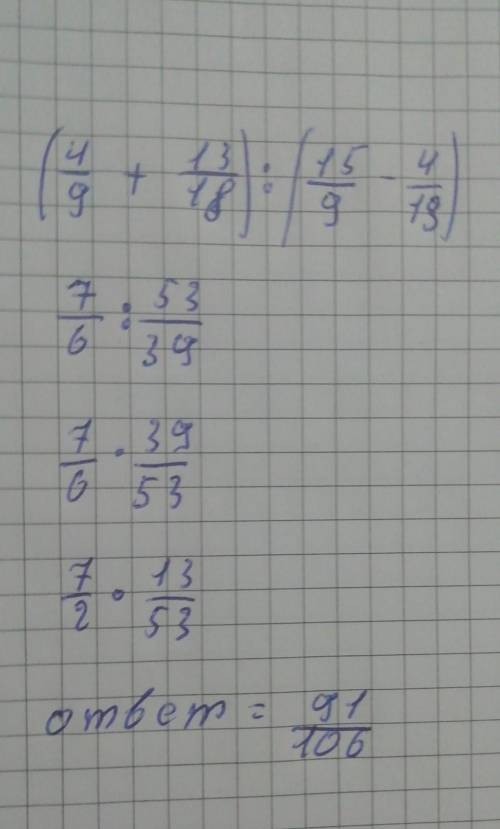 (4/9 + 13/18) : (15/9 - 4/13)
7/6 : 53/39
7/6 · 39/53
7/2 · 13/53
ответ = 91/106